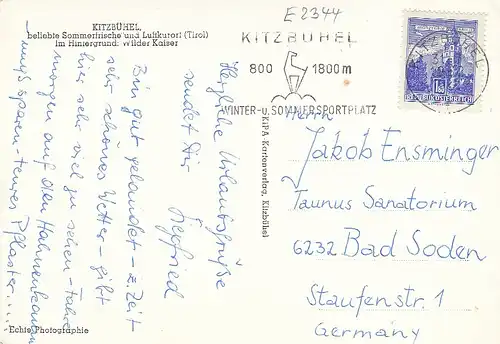 E2344
KITZBÜHEL,
beliebte Sommerfrische und Luftkurort (Tirol)
im Hintergrund: Wilder Kaiser
KITZBÜHEL
800 1800m
WINTER- u. SOMMERSPORTPLATZ
REPUBLIK ÖSTERREICH
Herzliche Urlaubsgrüße
sendet Dir
Siegfried
Bin gut gelandet - z Zeit
sehr schönes Wetter - gibt
hier sehr viel zu sehen - Fahre
morgen auf den Hahnenkamm
muß sparen - teures Pflaster....
KIPA-Kartenverlag, Kitzbühel
Herrn
Jakob Ensminger
Taunus Sanatorium
6232 Bad Soden
Staufenstr. 1
Germany
Echte Photographie